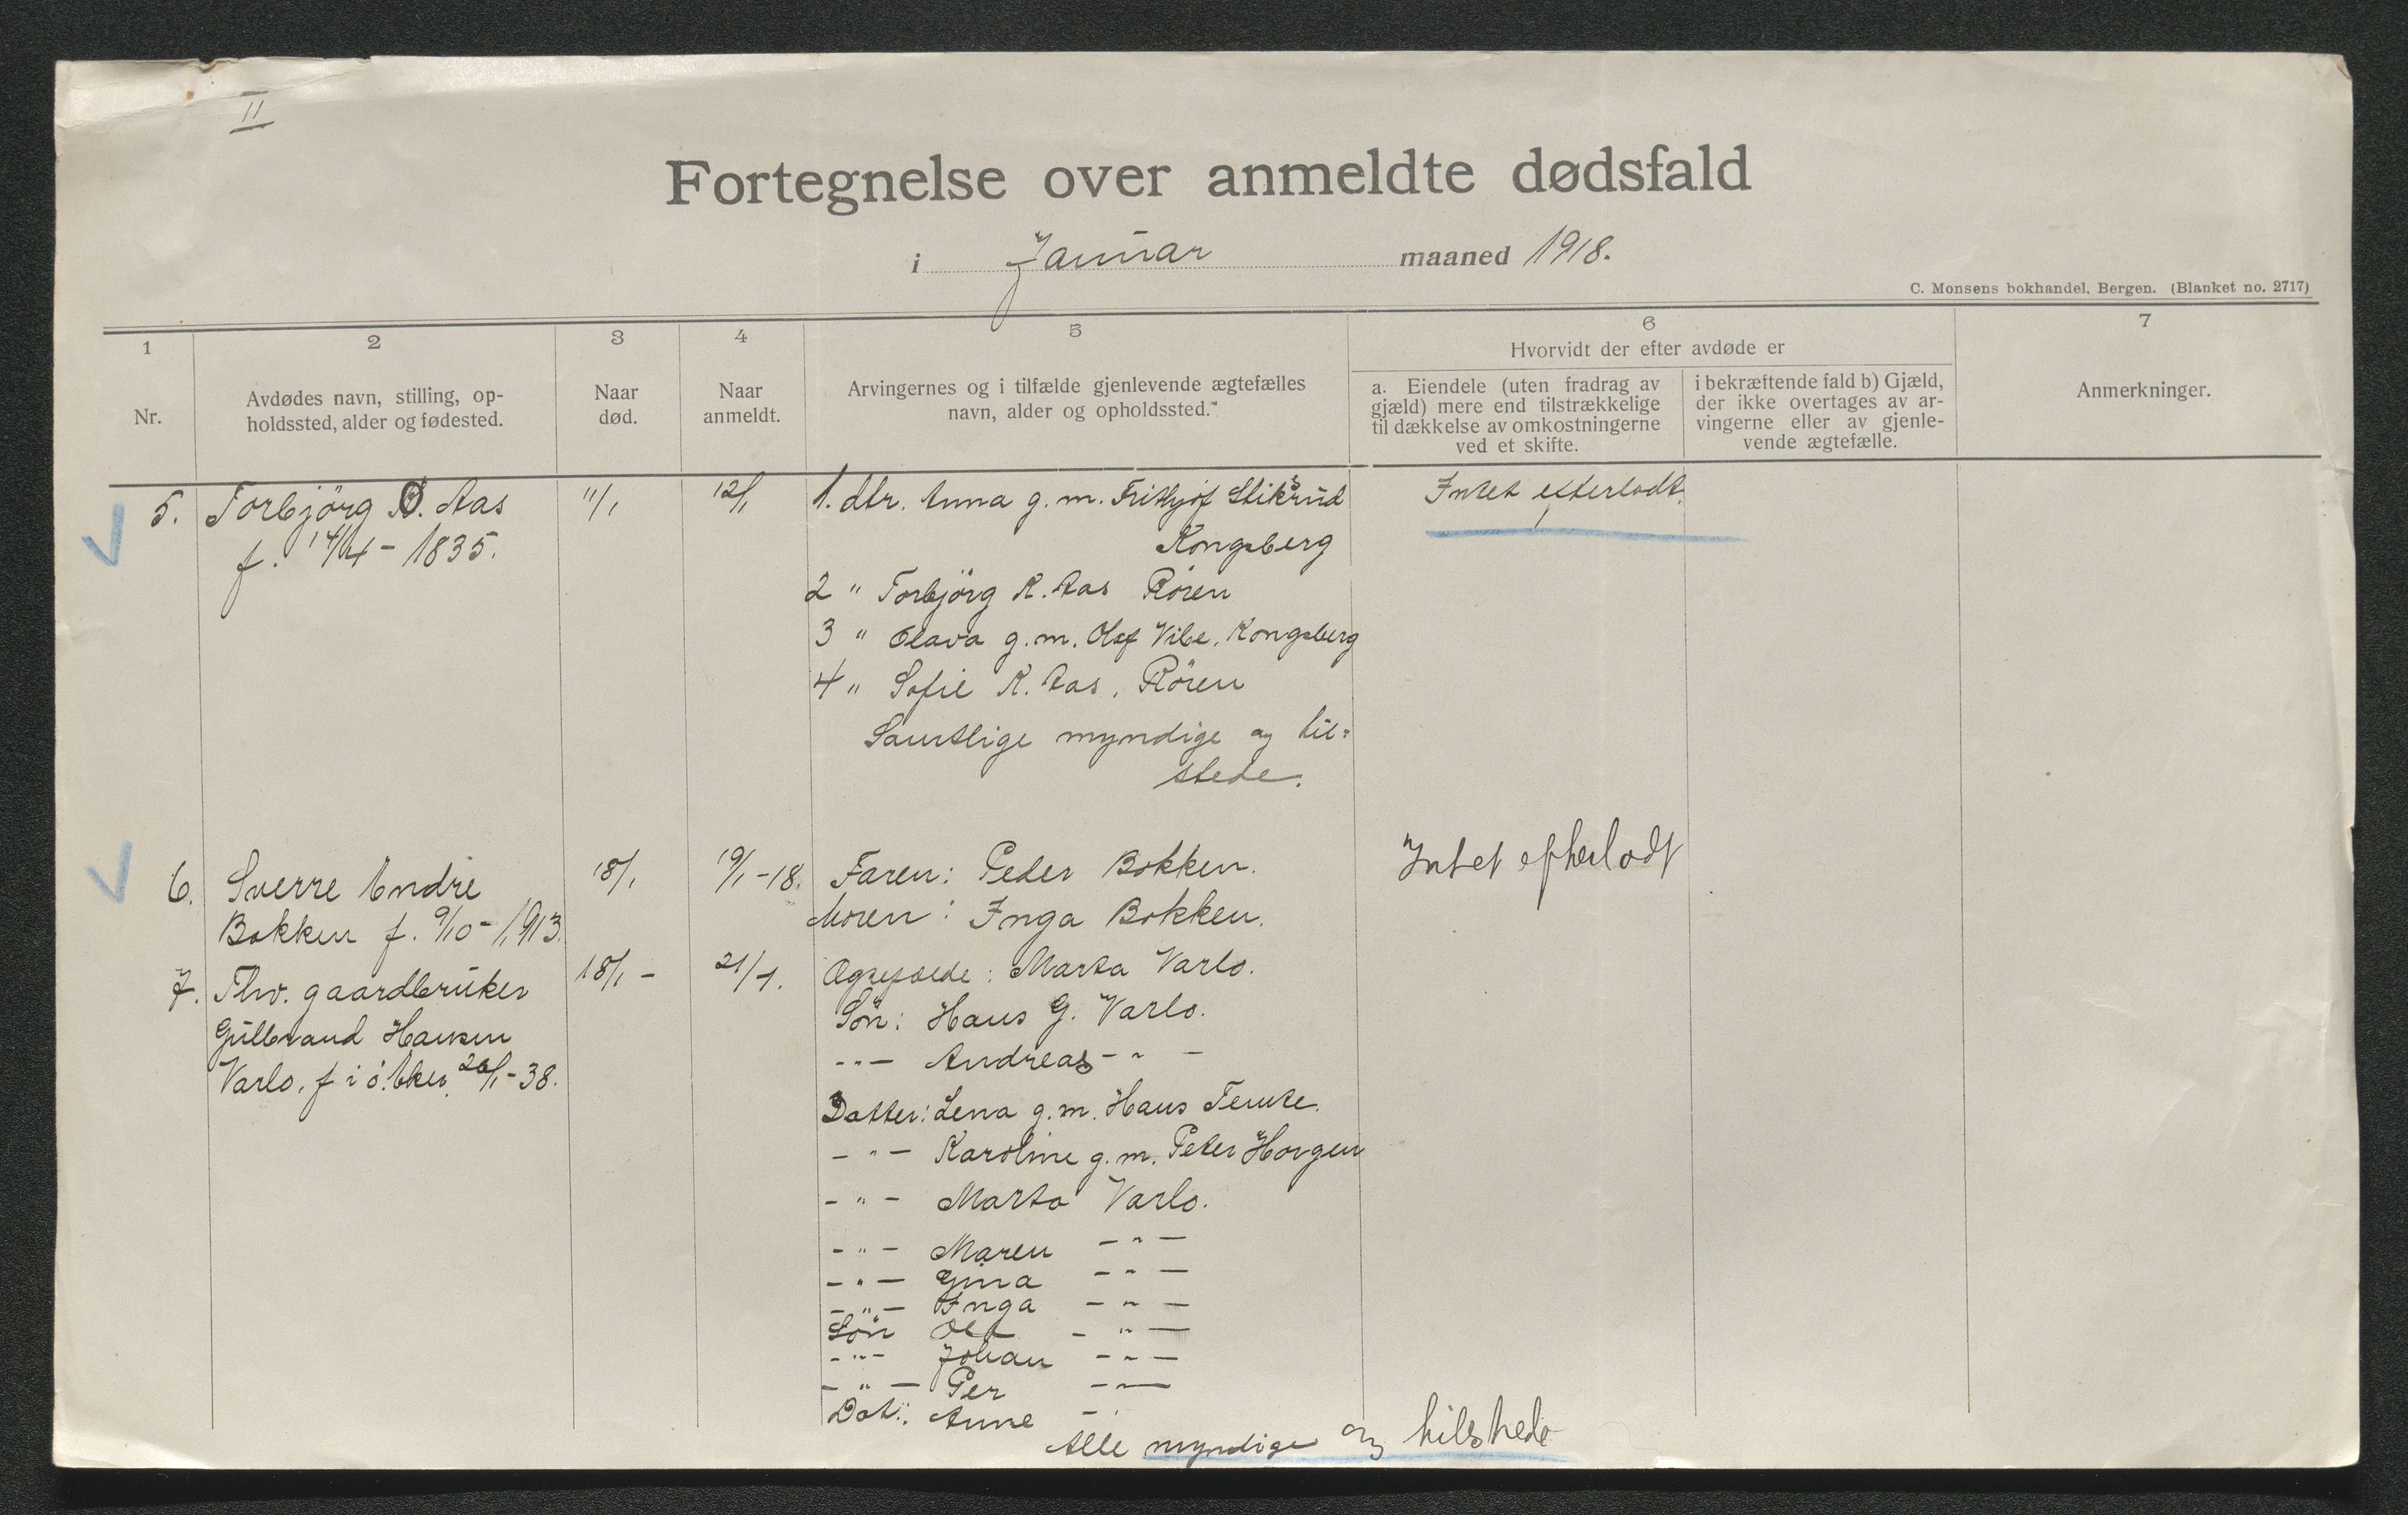 II
Fortegnelse over anmeldte dødsfald
i Januar maaned 1918.
C. Monsens bokhandel, Bergen. (Blanket no. 2717)
1
Nr.
2
Avdødes navn, stilling, op-
holdssted, alder og fødested.
3
Naar
død.
4
Naar
anmeldt.
5
Arvingernes og i tilfælde gjenlevende ægtefælles
navn, alder og opholdssted.
6
Hvorvidt der efter avdøde er
a. Eiendele (uten fradrag av
gjæld) mere end tilstrækkelige
til dækkelse av omkostningerne
ved et skifte.
i bekræftende fald b) Gjæld,
der ikke overtages av ar-
vingerne eller av gjenle-
vende ægtefælle.
7
Anmerkninger.
5. Torbjörg O. Aas
f. 14/4 - 1835.
11/1
12/1
1. dtr. Anna g. m. Frithjof Stiksrud
Kongsberg
2 " Torbjörg K. Aas Røren
3 " Olava g. m. Olaf Vibe, Kongsberg
4 " Sofie K. Aas, Røren
Samtlige myndige og til=
stede.
Intet efterladt.
6. Sverre Endre
Bakken f. 9/10 - 1913.
18/1
19/1 - 18.
Faren: Peder Bakken.
Moren: Inga Bakken.
Intet efterladt
7. Fhv. gaardbruker
Gulbrand Hansen
Varlo, f i ö. Eker 26/1 - 38.
18/1 -
21/1.
Ægtefælde: Marta Varlo.
Søn: Hans G. Varlo.
-"- Andreas -"-
Datter: Lena g. m. Hans Temte.
-"- Karoline g. m. Peter Horgen
-"- Marta Varlo.
-"- Maren -"-
-"- Gina -"-
-"- Inga -"-
Søn Ole -"-
-"- Johan -"-
-"- Per -"-
Dat.: Anne -"
Alle myndige og tilstede